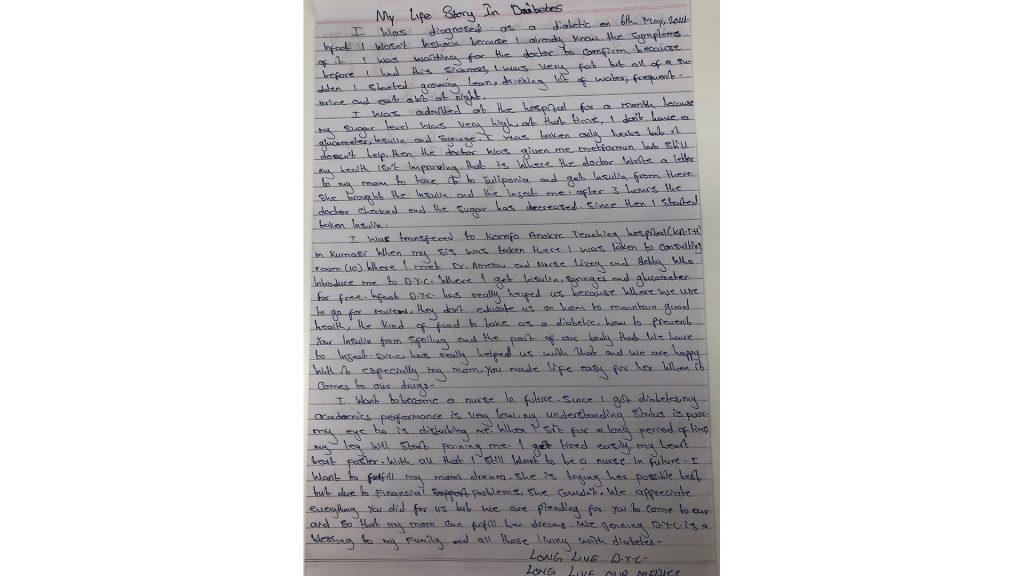 My Life Story In Daibetes
I Was diagnosed as a diabetic on 6th May, 2014.
Infact I Wasn't Inshock because I already know the symptoms
of it. I was waitting for the doctor to Comfirm because
before I had this Sickness, I was Very fat but all of a su-
dden I started growing lean, drinking lot of water, frequent
urine and eat alot at night.
I Was admitted at the hospital for a month because
my Sugar level Was Very high, at that time, I don't have a
glucometer, Insulin and Syringe. I was taken only herbs but it
doesn't help, then the doctor Was given me metformin but still
my health isn't Improving that is Where the doctor Wrote a letter
to my mom to take it to Juliponia and get Insulin from there.
She brought the Insulin and the Inject me. after 3 hours the
doctor checked and the Sugar has decreased. Since then I started
taken Insulin.
I Was transferred to Komfo Anokye Teaching hospital (KATH)
in Kumasi When my sis was taken there. I was taken to consulting
room (10) Where I met Dr. and Nurse Lizzy and Debby Who
Introduce me to D.Y.C. Where I get Insulin, syringes and glucometer
for free. Infact D.Y.C has really helped us because Where We use
to go for review, they don't educate us on how to maintain good
health, the Kind of food to take as a diabetic, how to prevent
Your Insulin from Spoiling and the part of our body that We have
to Inject. D.Y.C has really helped us with that and we are happy
With it especially my mom, you made life easy for her When it
Comes to our drugs-
I Want to become a nurse In future. Since I got diabetes, my
academics performance is Very low, my understanding Status is poor
my eye too is disturbing me. When I sit for a long period of time,
my leg Will Start paining me. I get tired easily, my heart
beat faster. With all that I still Want to be a nurse in future. I
Want to fulfill my mom's dream. She is trying her possible best
but due to Financial Support problems, She Couldn't. We appreciate
everything You did for us but We are pleading for you to Come to our
aid so that my mom Can fulfill her dreams. Me joining D.Y.C is a
blessing to my Family and all those living with diabetes-
LONG LIVE D.Y.C
LONG LIVE OUR MEDICS